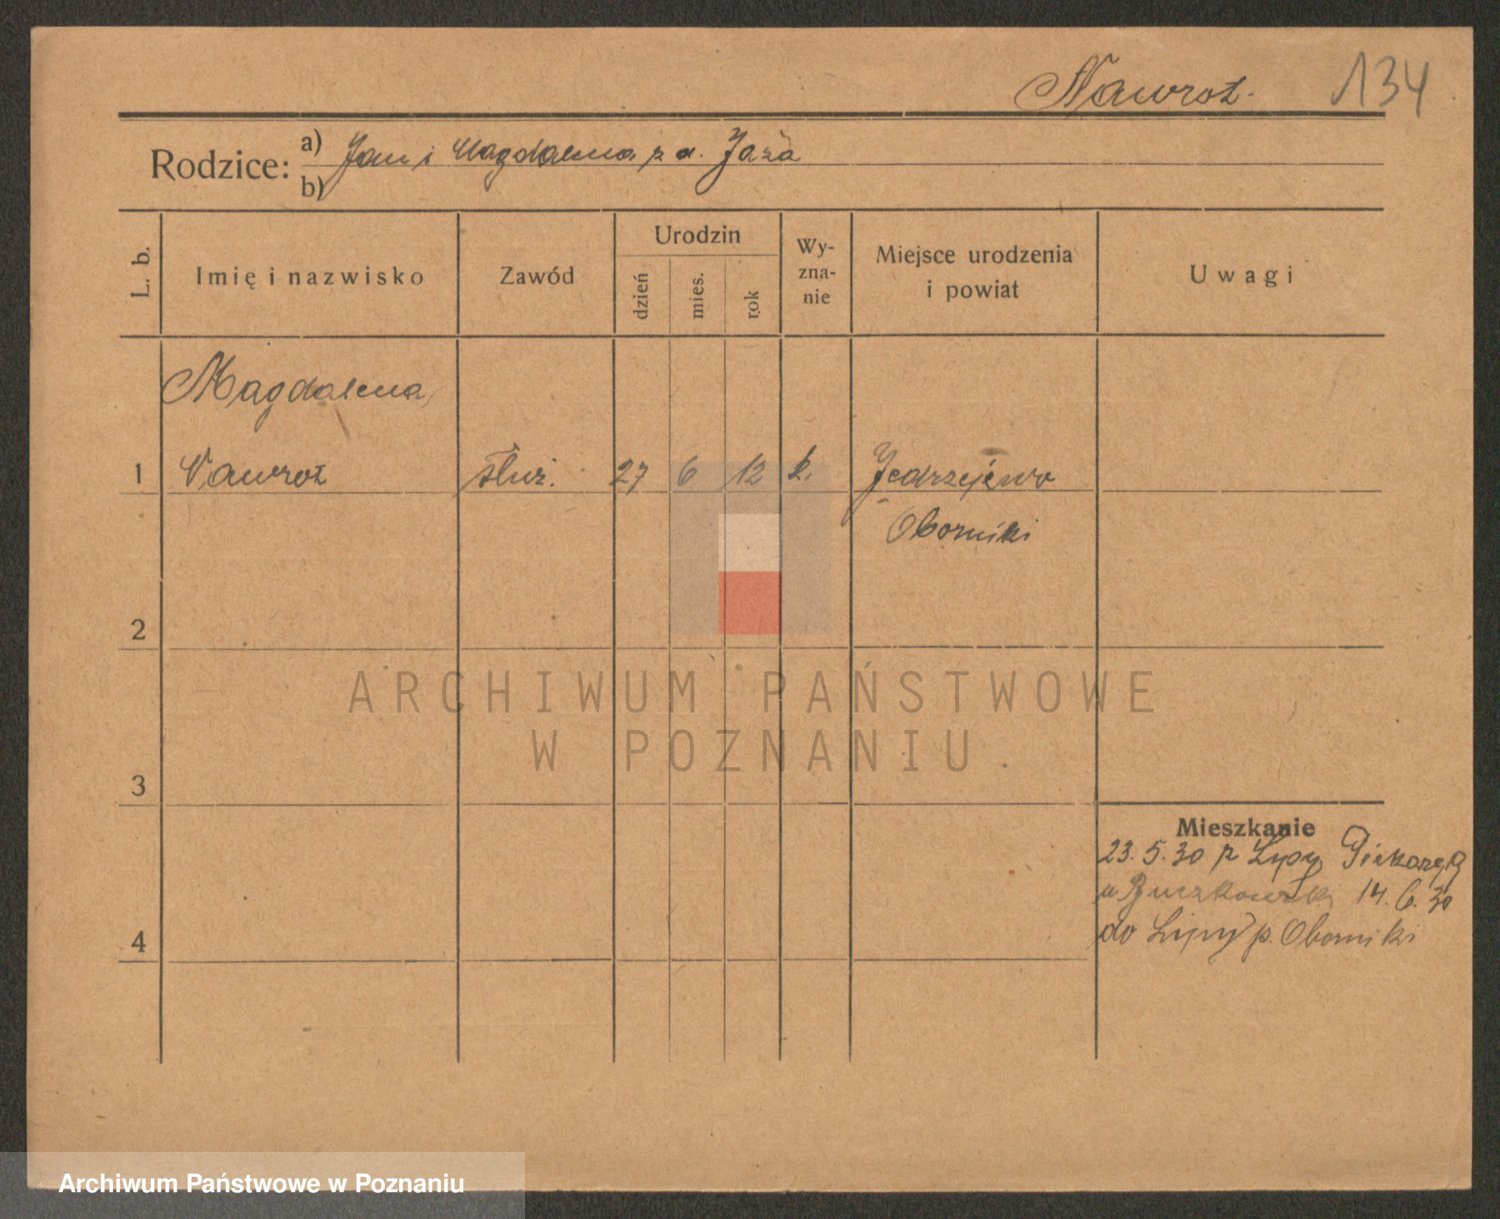 Nawrot. 134
Rodzice: a) Jan i Magdalena z d. Jaza
b)
L. b.
Imię i nazwisko
Zawód
Urodzin
dzień
mies.
rok
Wy-
zna-
nie
Miejsce urodzenia
i powiat
Uwagi
Magdalena
1 Nawrot służ. 27 6 12 k. Jędrzejewo
Oborniki
2
3
4
Mieszkanie
23.5.30 z Lipy Piekary 9
u 14.6.30
do Lipy p. Oborniki
ARCHIWUM PAŃSTWOWE
W POZNANIU
Archiwum Państwowe w Poznaniu